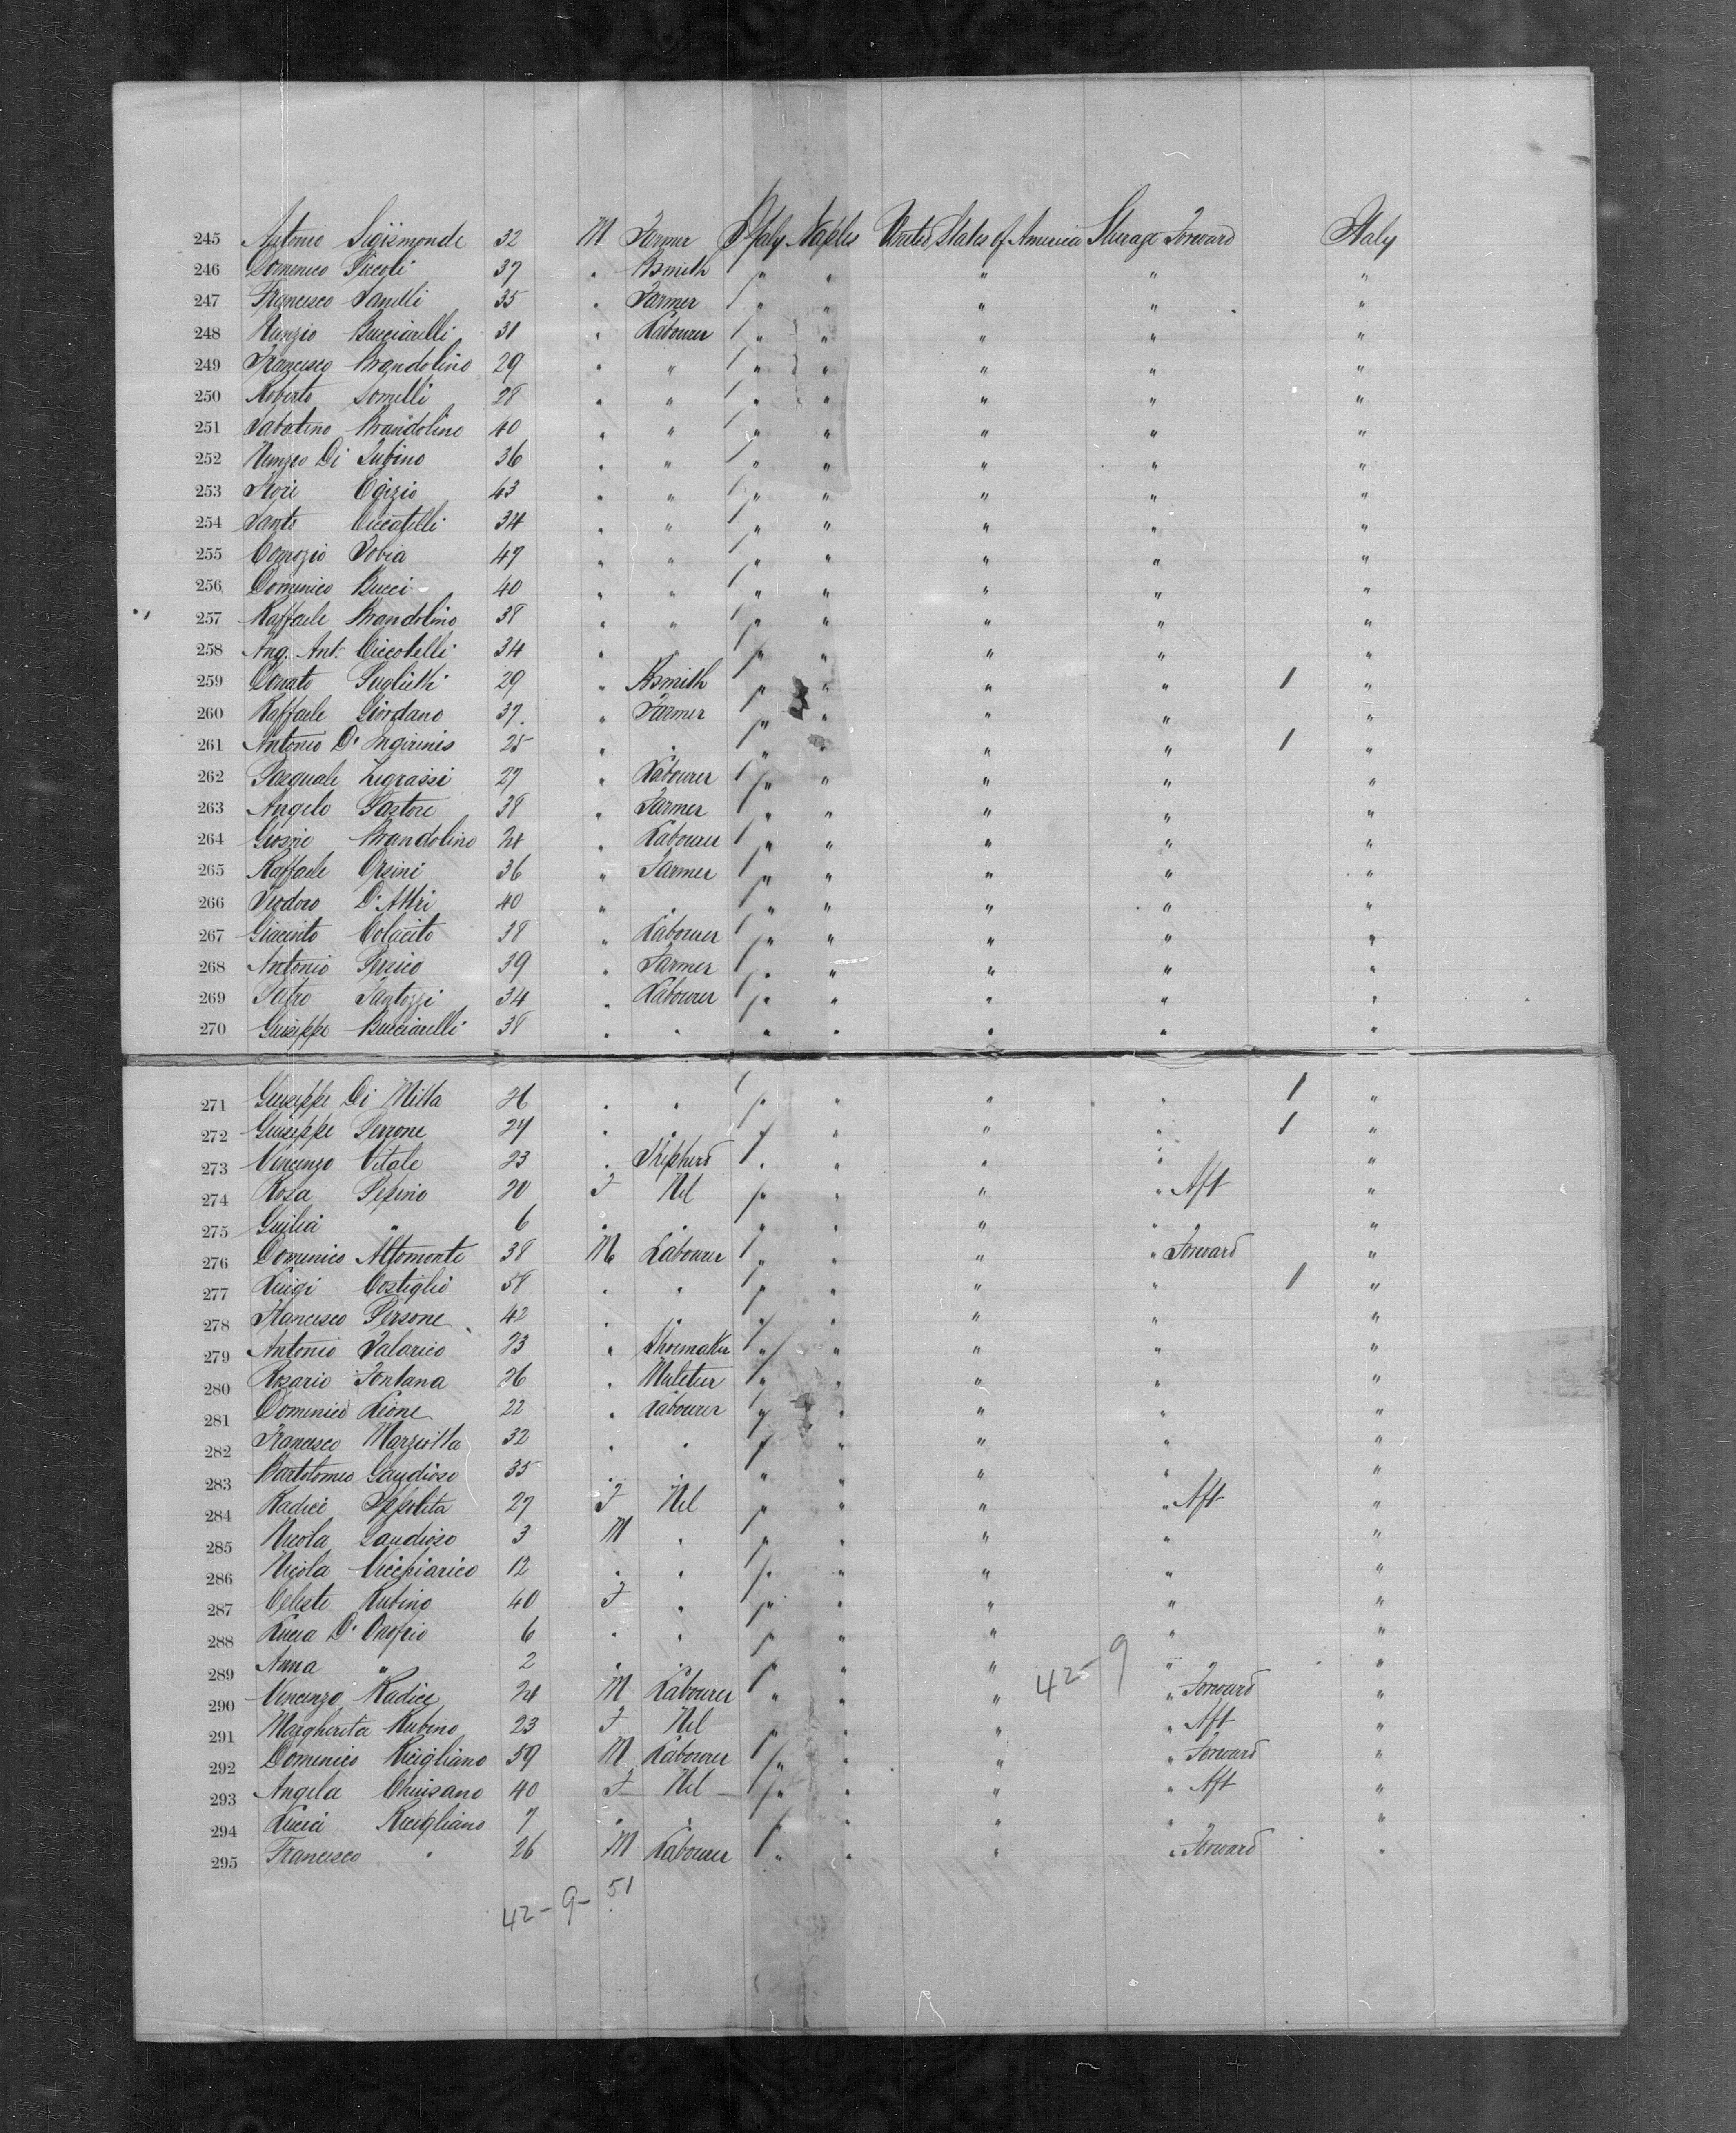 245 Antonio Sigismonde 32 M Farmer Italy Naples United States of America Steerage Forward Italy
246 Domenico Piccoli 37 " Bsmith " " " " "
247 Francesco 35 " Farmer " " " " "
248 Nunzio Bucciarelli 31 " Labourer " " " " "
249 Francesco Brandolino 29 " " " " " " "
250 Roberto 28 " " " " " " "
251 Sabatino Brandolino 40 " " " " " " "
252 Nunzio Di 36 " " " " " " "
253 Egizio 43 " " " " " " "
254 Sante Ciccatelli 34 " " " " " " "
255 Tobia 47 " " " " " " "
256 Domenico Bucci 40 " " " " " " "
257 Raffaele Brandolino 38 " " " " " " "
258 Ang. Ant. Ciccotelli 34 " " " " " " "
259 Donato 29 " Bsmith " " " " 1 "
260 Raffaele Giordano 37 " Farmer " " " " "
261 Antonio D' 25 " " " " " " 1 "
262 Pasquale 27 " Labourer " " " " "
263 Angelo Pastore 38 " Farmer " " " " "
264 Brandolino 24 " Labourer " " " " "
265 Raffaele Orsini 36 " Farmer " " " " "
266 Teodoro D'Attri 40 " " " " " " "
267 Giacinto Colacito 38 " Labourer " " " " "
268 Antonio Persico 39 " Farmer " " " " "
269 Pietro 34 " Labourer " " " " "
270 Giuseppe Bucciarelli 38 " " " " " " "
271 Giuseppe Di Mitta 26 " " " " " " 1 "
272 Giuseppe Perrone 24 " " " " " " 1 "
273 Vincenzo Vitale 23 " Shepherd " " " " "
274 Rosa 20 F Nil " " " " Aft "
275 Guilia " 6 " " " " " " "
276 Domenico Altomonte 38 M Labourer " " " " Forward "
277 Luigi Costiglio 58 " " " " " " 1 "
278 Francesco Persone 42 " " " " " " "
279 Antonio Talarico 23 " Shoemaker " " " " "
280 Rosario Fontana 26 " " " " " "
281 Domenico Leone 22 " Labourer " " " " "
282 Francesco Marziotta 32 " " " " " " "
283 Bartolomeo Gaudioso 35 " " " " " " "
284 Radice Ippolita 27 F Nil " " " " Aft "
285 Nicola Gaudioso 3 M " " " " " "
286 Nicola 12 " " " " " " "
287 Celeste Rubino 40 F " " " " " "
288 Lucia D'Onofrio 6 " " " " " " "
289 Anna " 2 " " " " " " "
42-9
290 Vincenzo Radice 24 M Labourer " " " " Forward "
291 Margherita Rubino 23 F Nil " " " " Aft "
292 Domenico Ricigliano 59 M Labourer " " " " Forward "
293 Angela Chiusano 40 F Nil " " " " Aft "
294 Lucia Ricigliano 7 " " " " " " "
295 Francesco " 26 M Labourer " " " " Forward "
42-9-51